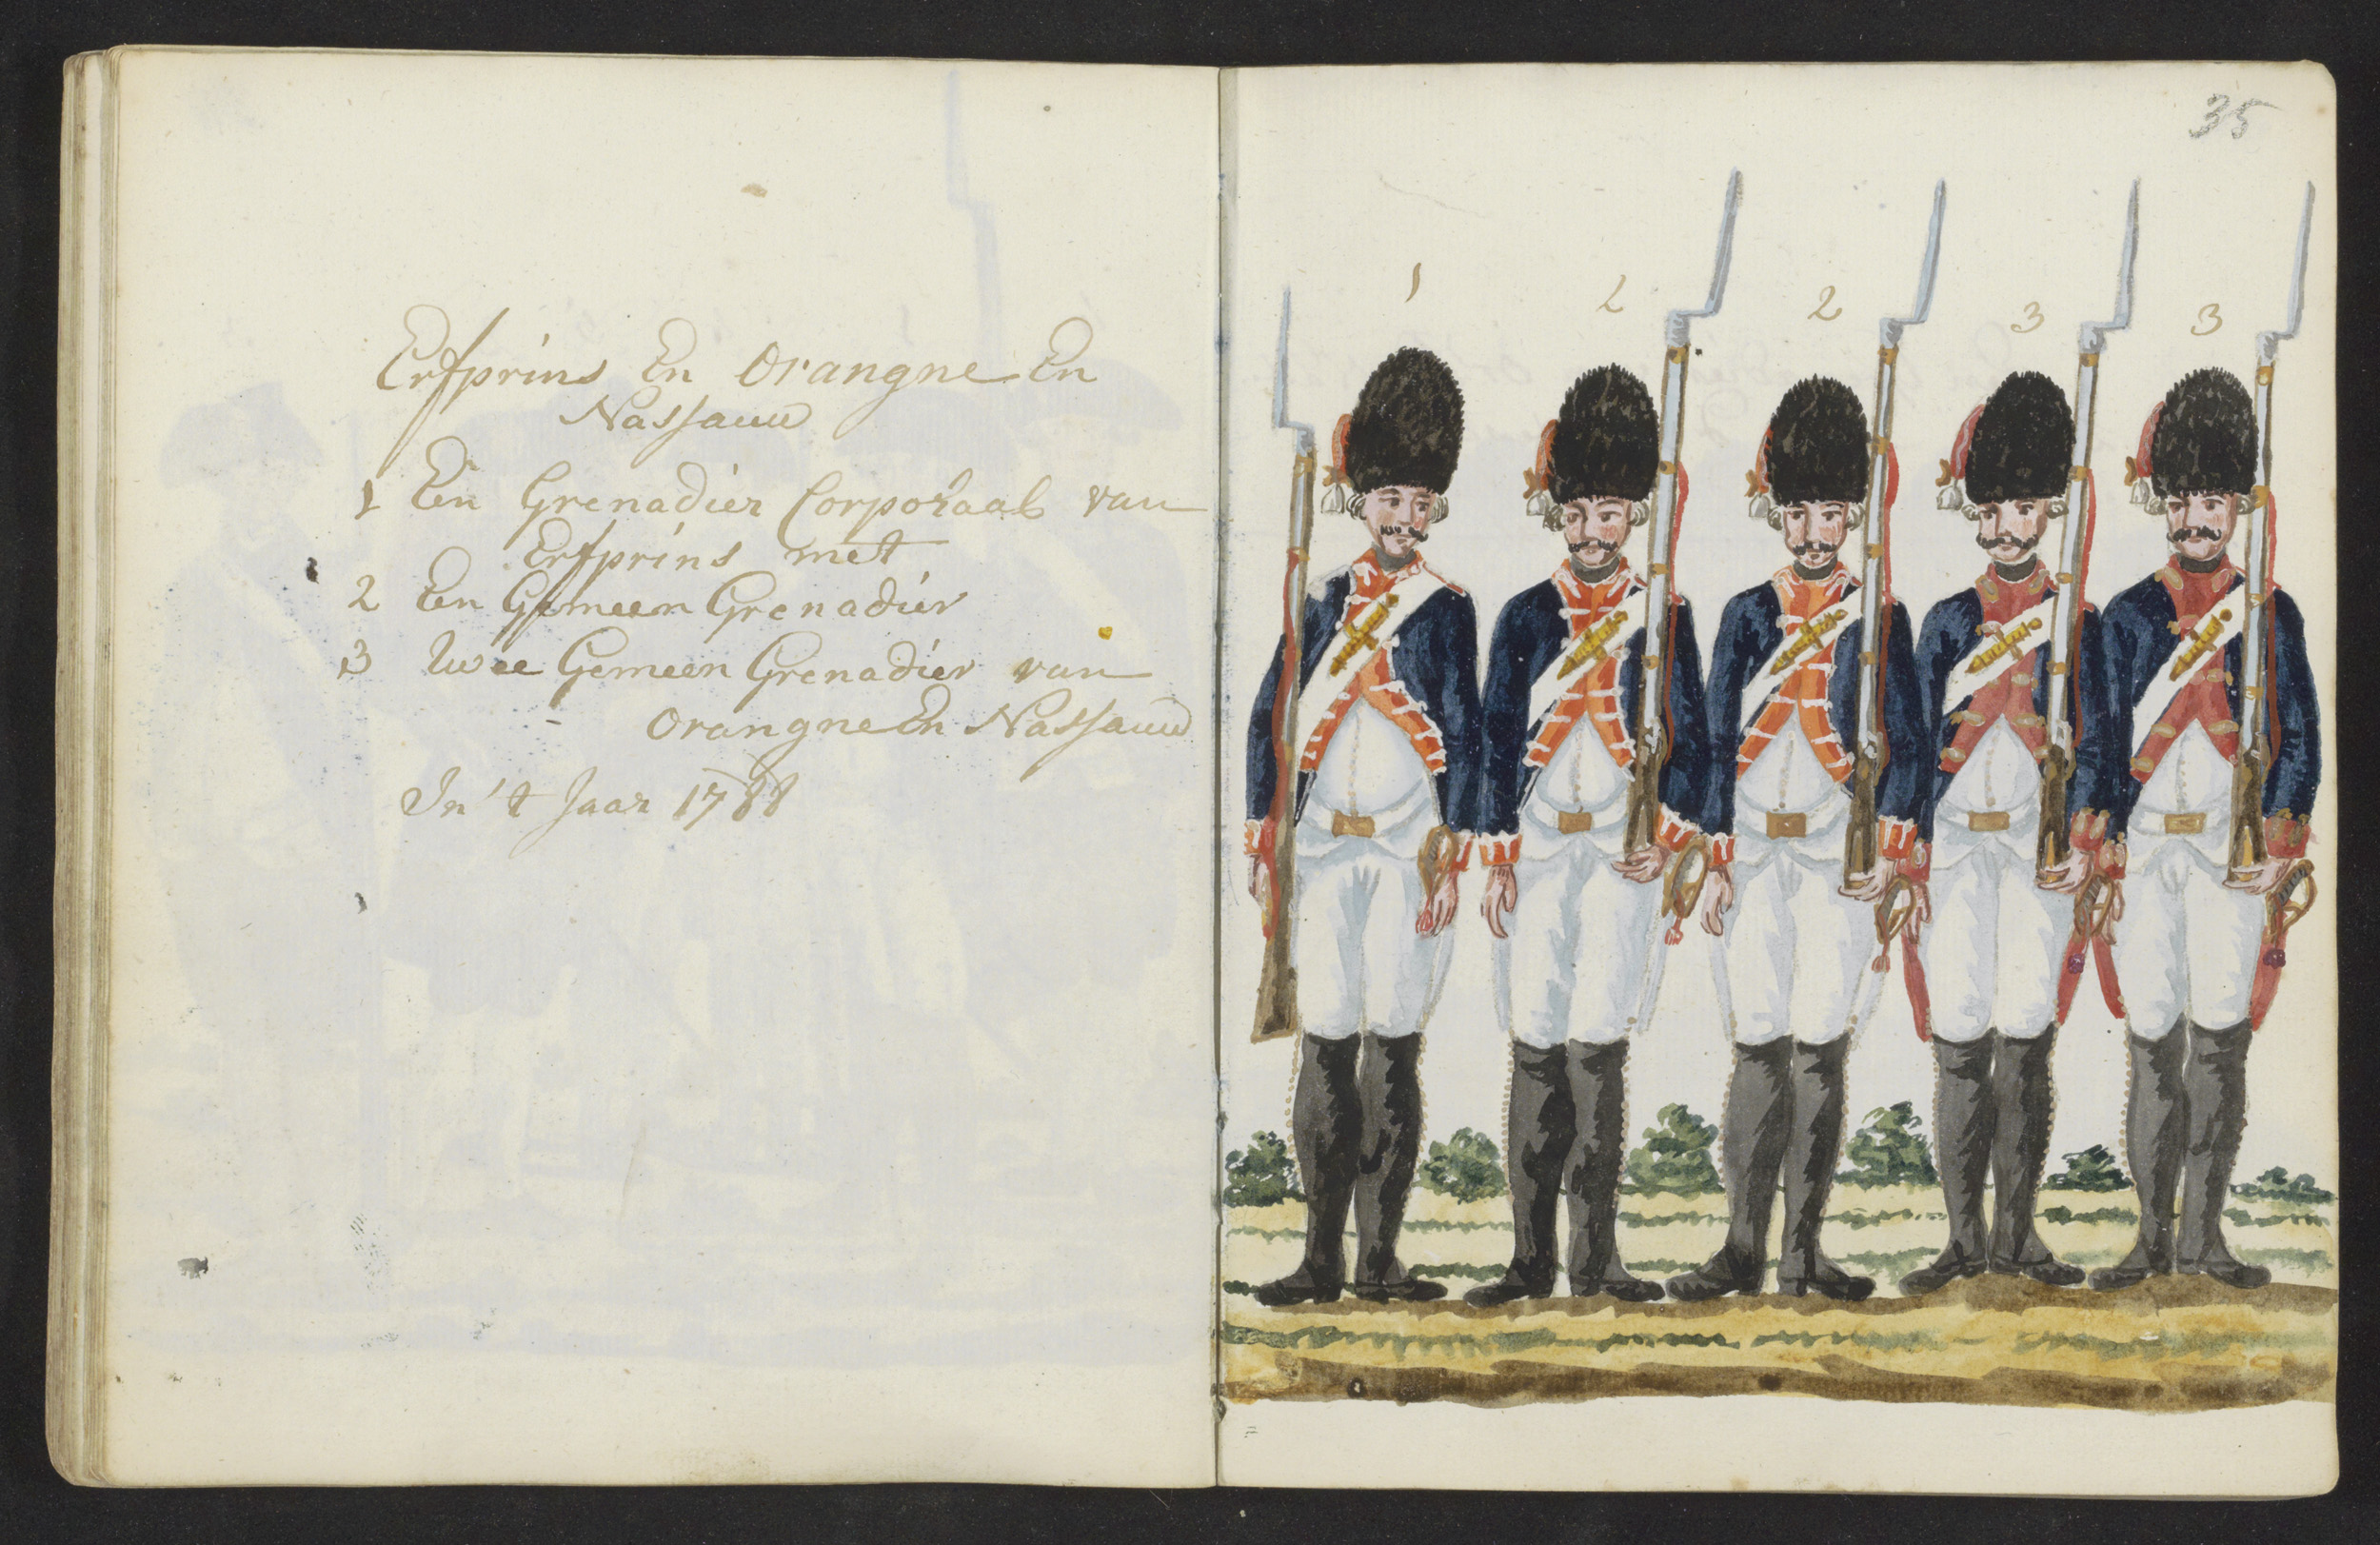 Erfprins En Orangne En
Nassauw
1 Een Grenadier Corporaal van
Erfprins met
2 Een Gemeen Grenadier
3 Twee Gemeen Grenadier van
Orangne En Nassauw
In 't Jaar 1788
35
1 2 2 3 3